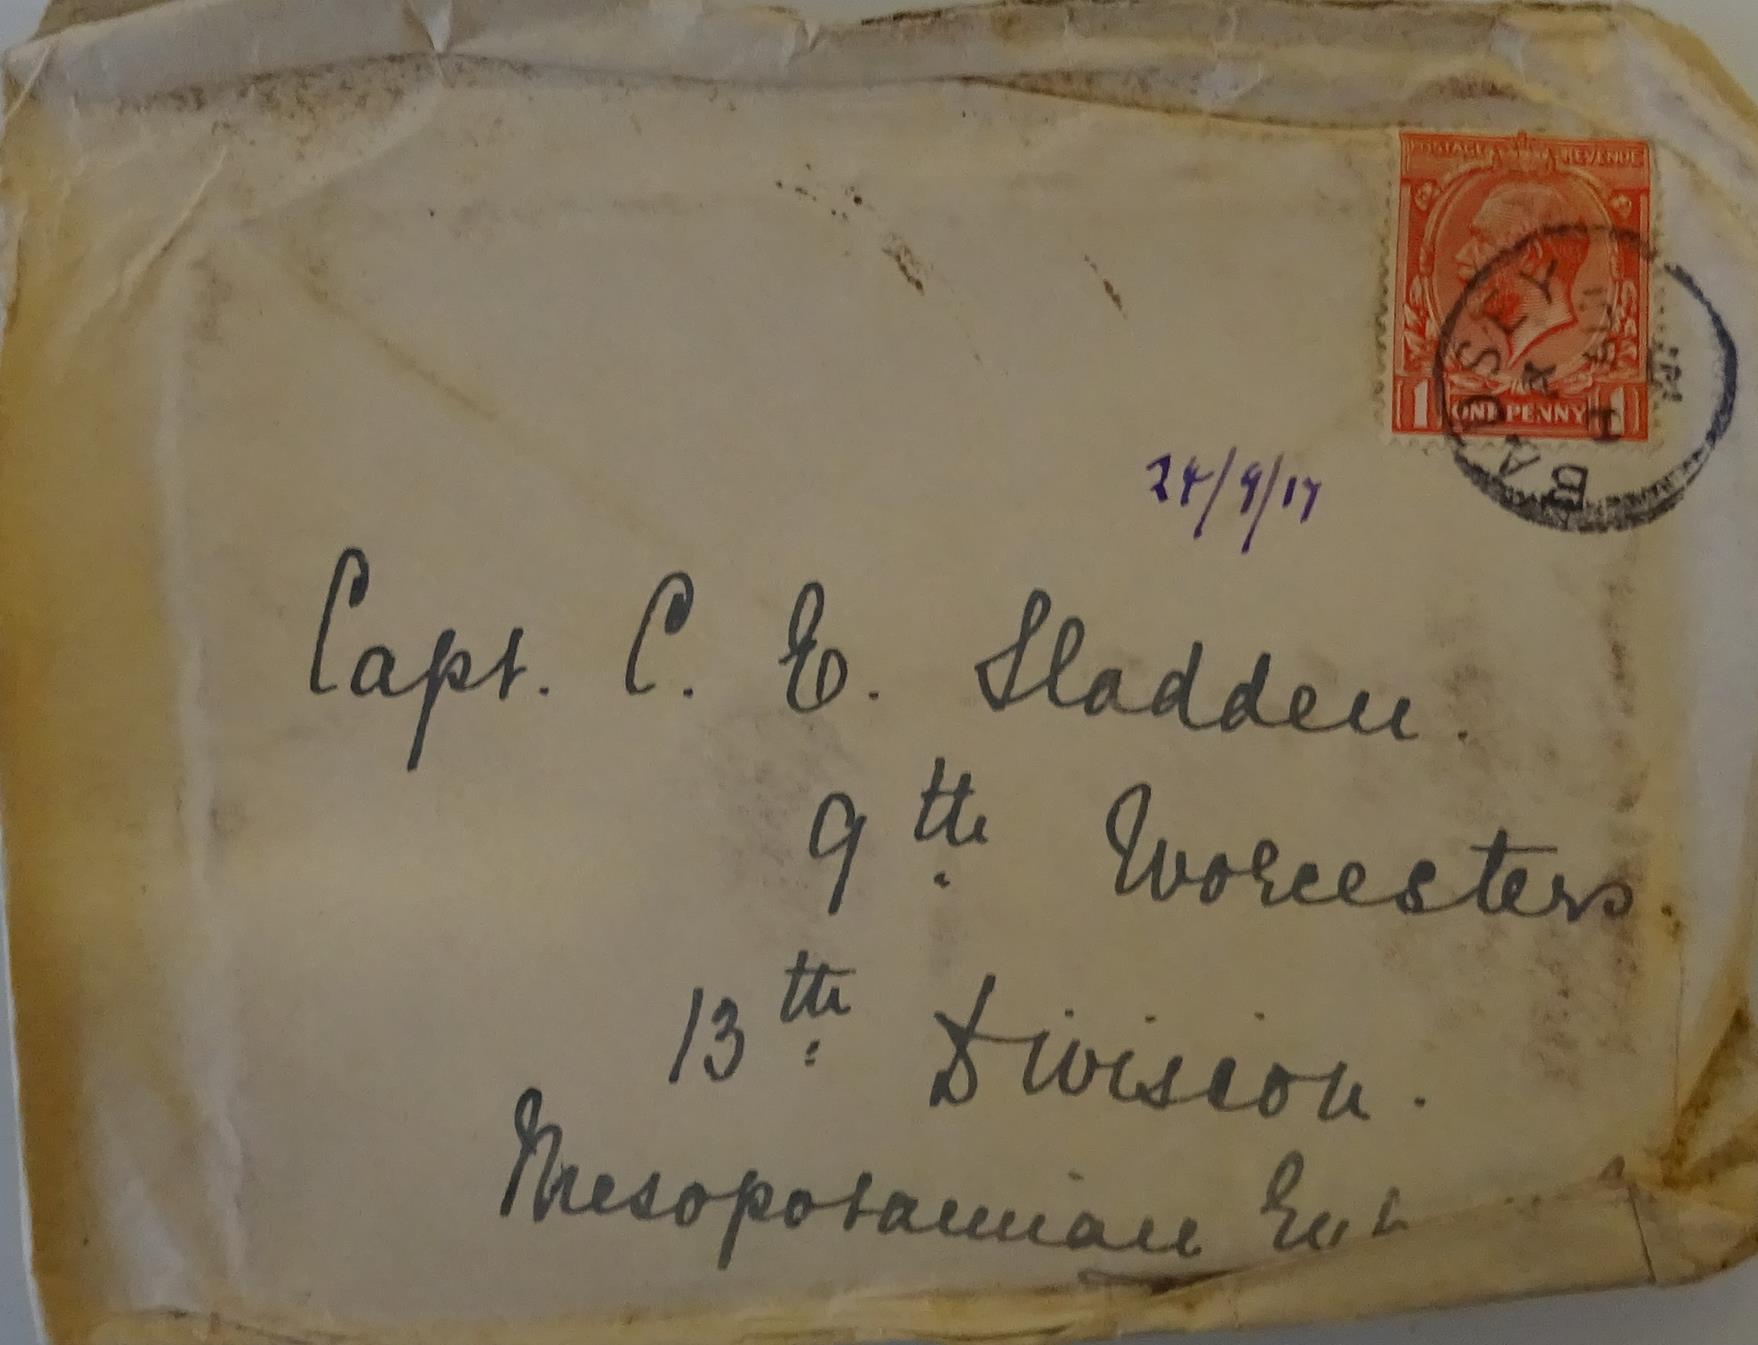 POSTAGE REVENUE
1 ONE PENNY 1
BADSEY
24/9/17
Capt. C. E. Sladden.
9th Worcesters
13th Division.
Mesopotamian